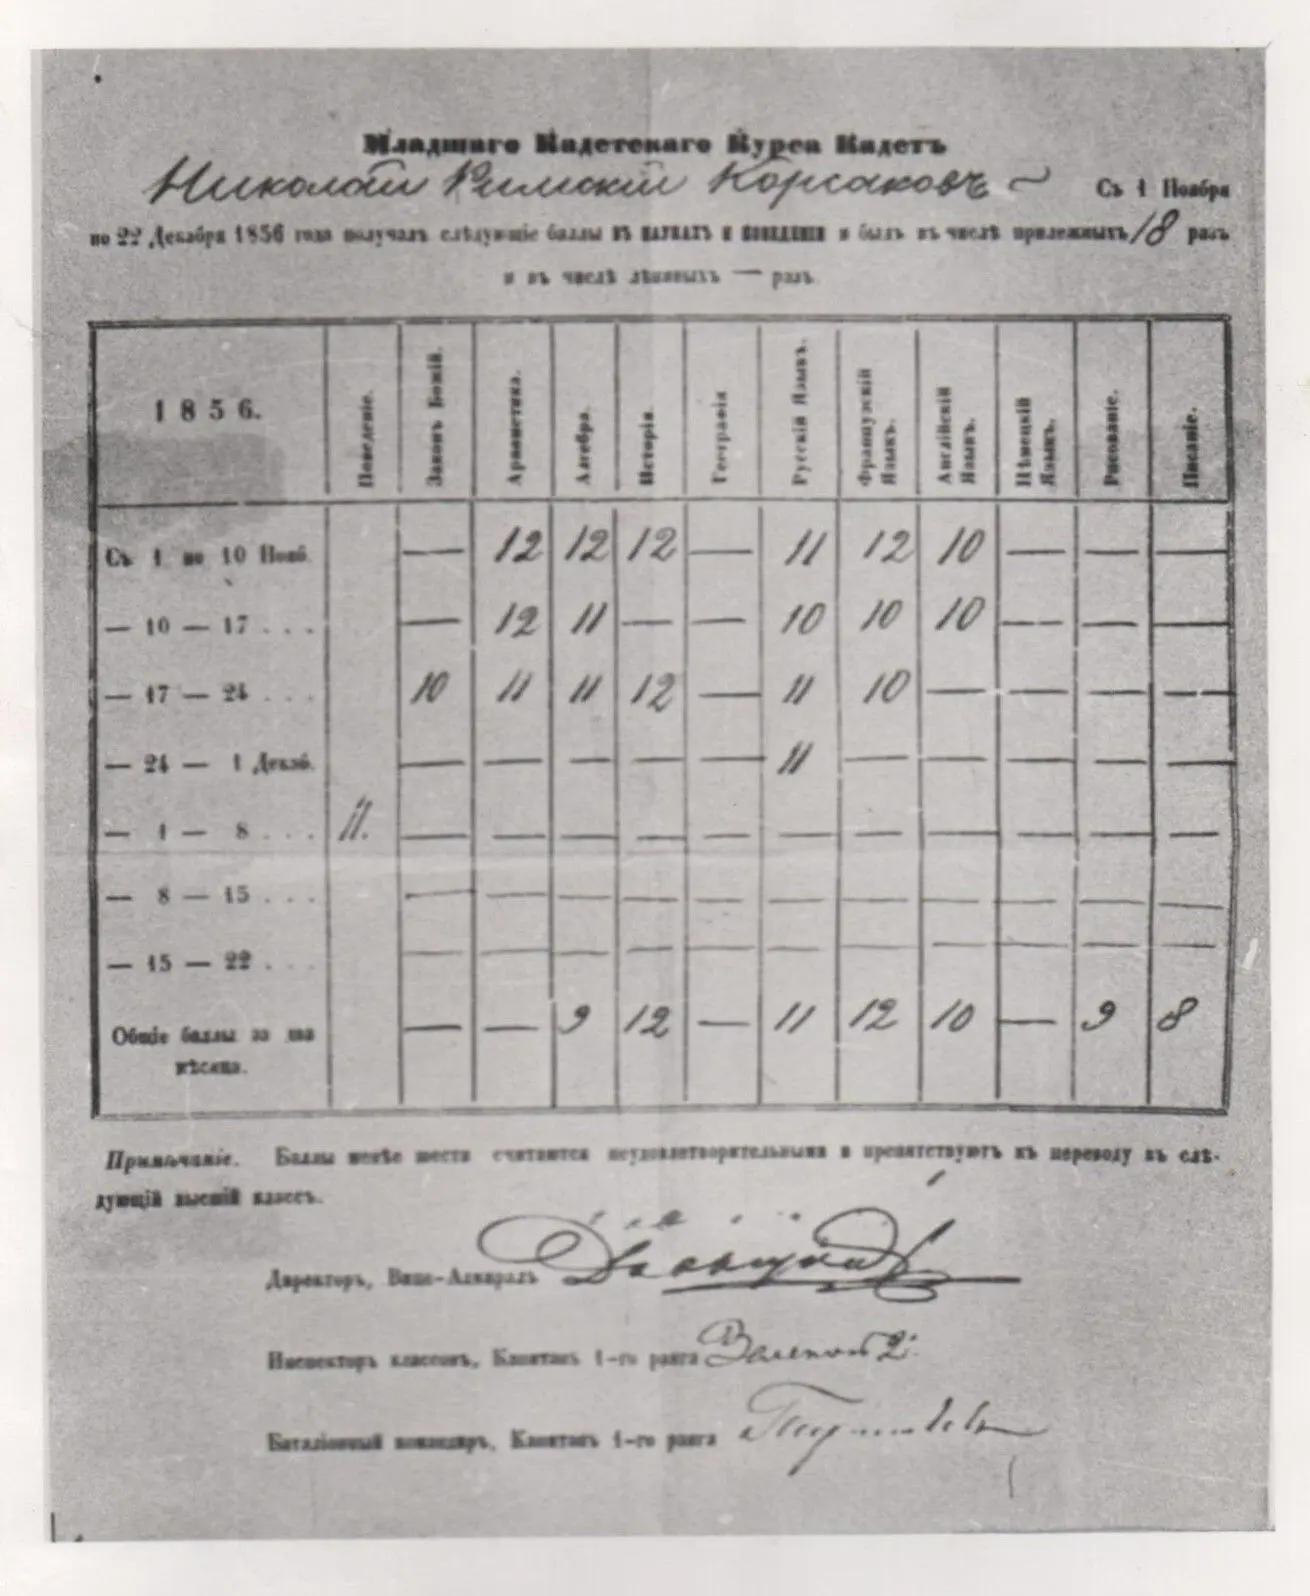 Младшаго Кадетскаго Курса Кадетъ
Николай Римскій Корсаковъ Съ 1 Ноября
по 22 Декабря 1856 года получалъ слѣдующіе баллы въ наукахъ и поведеніи и былъ въ числѣ прилежныхъ 18 разъ
и въ числѣ лѣнивыхъ — разъ.
1856. Поведеніе. Законъ Божій. Ариѳметика. Алгебра. Исторія. Географія Русскій Языкъ. Французскій Языкъ. Англійскій Языкъ. Нѣмецкій Языкъ. Рисованіе. Писаніе.
Съ 1 по 10 Нояб. — 12 12 12 — 11 12 10 — — —
— 10 — 17 . . . — 12 11 — — 10 10 10 — — —
— 17 — 24 . . . 10 11 11 12 — 11 10 — — — —
— 24 — 1 Декаб. — — — — — 11 — — — — —
— 1 — 8 . . . 11. — — — — — — — — — — —
— 8 — 15 . . . — — — — — — — — — — —
— 15 — 22 . . . — — — — — — — — — — —
Общіе баллы за два — — 9 12 — 11 12 10 — 9 8
мѣсяца.
Примѣчаніе. Баллы менѣе шести считаются неудовлетворительными и препятствуютъ къ переводу въ слѣ-
дующій высшій классъ.
Директоръ, Вице-Адмиралъ
Инспекторъ классовъ, Капитанъ 1-го ранга
Баталіонный командиръ, Капитанъ 1-го ранга